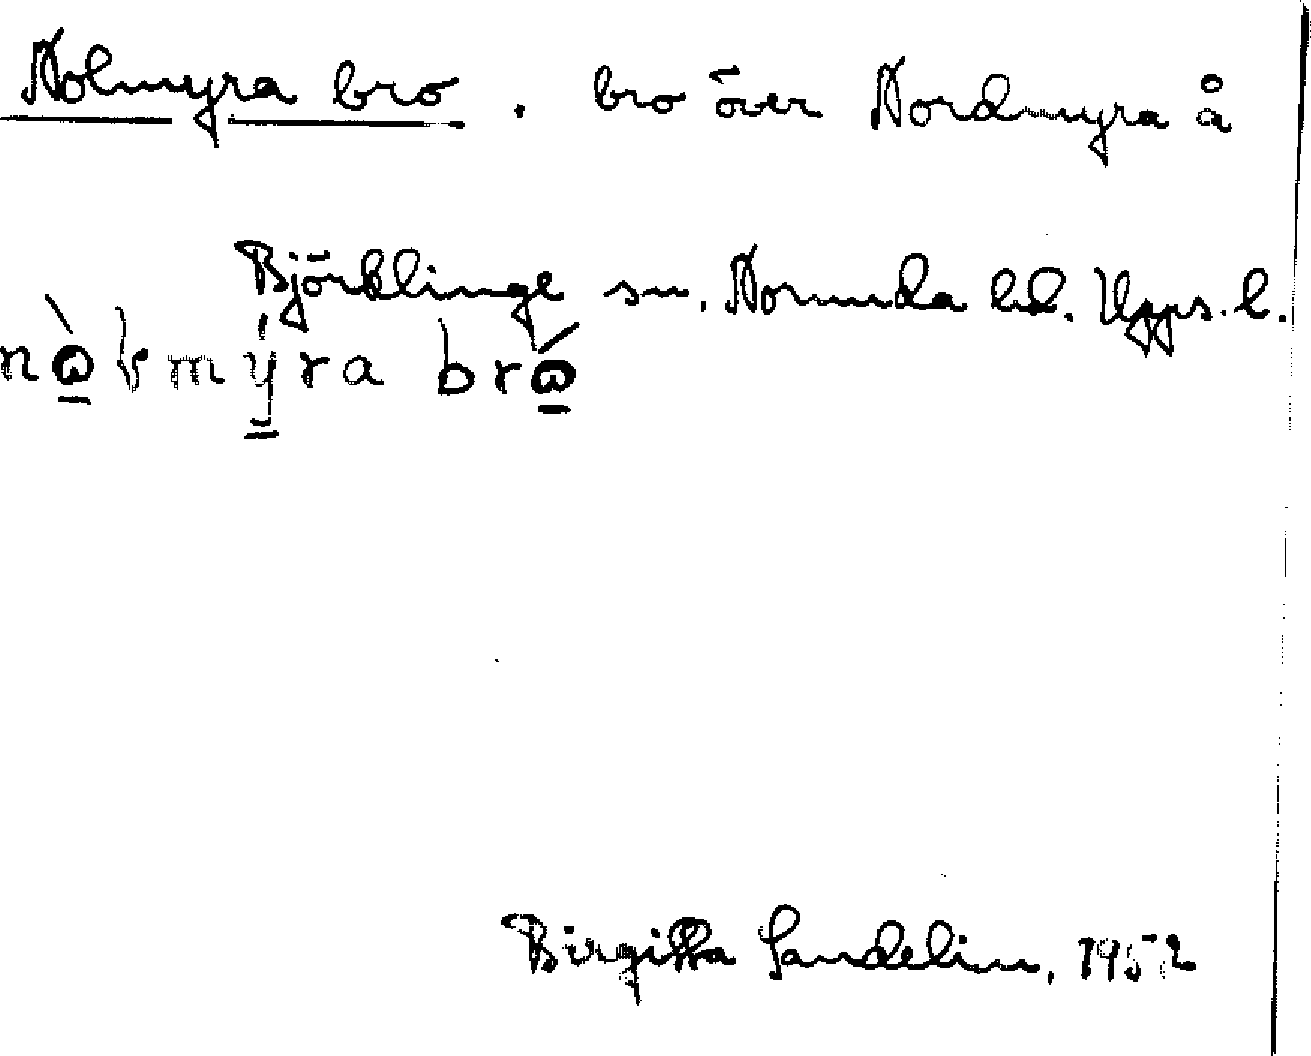 Nolmyra bro. bro över Nordmyra å
Björklinge sn. Norunda hd. Upps. l.
bró
Birgitta Sandelin, 1952